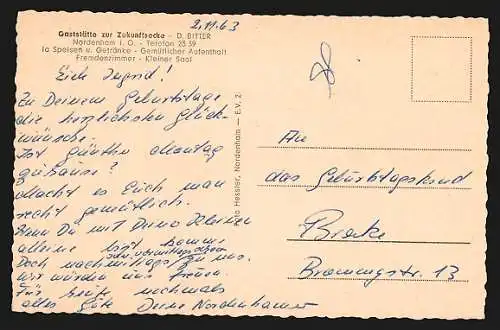 2.11.63
Gaststätte zur Zukunftsecke - D. BITTER
Nordenham i. O. - Telefon 23 59
la Speisen u. Getränke - Gemütlicher Aufenthalt
Fremdenzimmer - Kleiner Saal
Zu Deinem Geburtstage
die herzlichsten Glück-
wünsche.
Ist Günther Montag
zuhause?
Macht es Euch man
recht gemütlich.
Wenn Du mit
alleine bist komme
doch nachmittags zu uns.
Wir würden uns freuen.
Für heute nochmals
alles Gute Deine Nordenhamer
Hessler, Nordenham — E.V. 2
An
das Geburtstagskind
Brake
Brommystr. 13